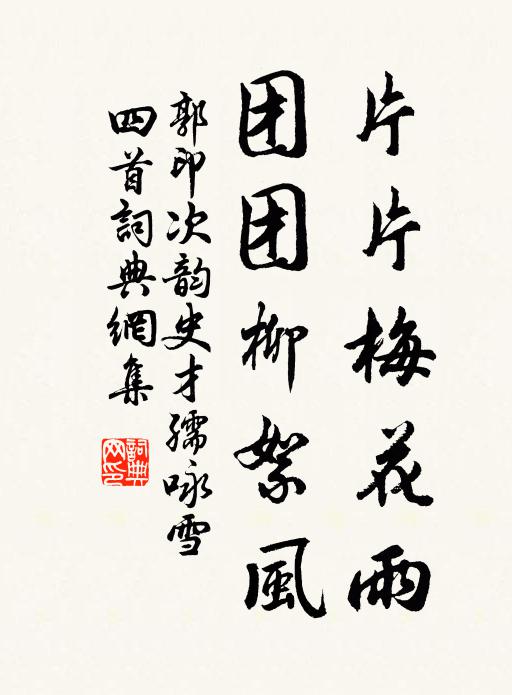 片片梅花雨
团团柳絮風
郭印次韵史才孺咏雪
四首詞典網集
詞典网印